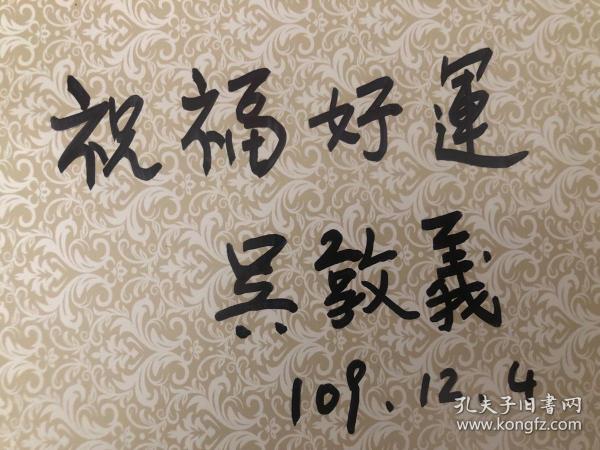 祝福好運
吳敦義
109.12.4
孔夫子旧書网
www.kongfz.com